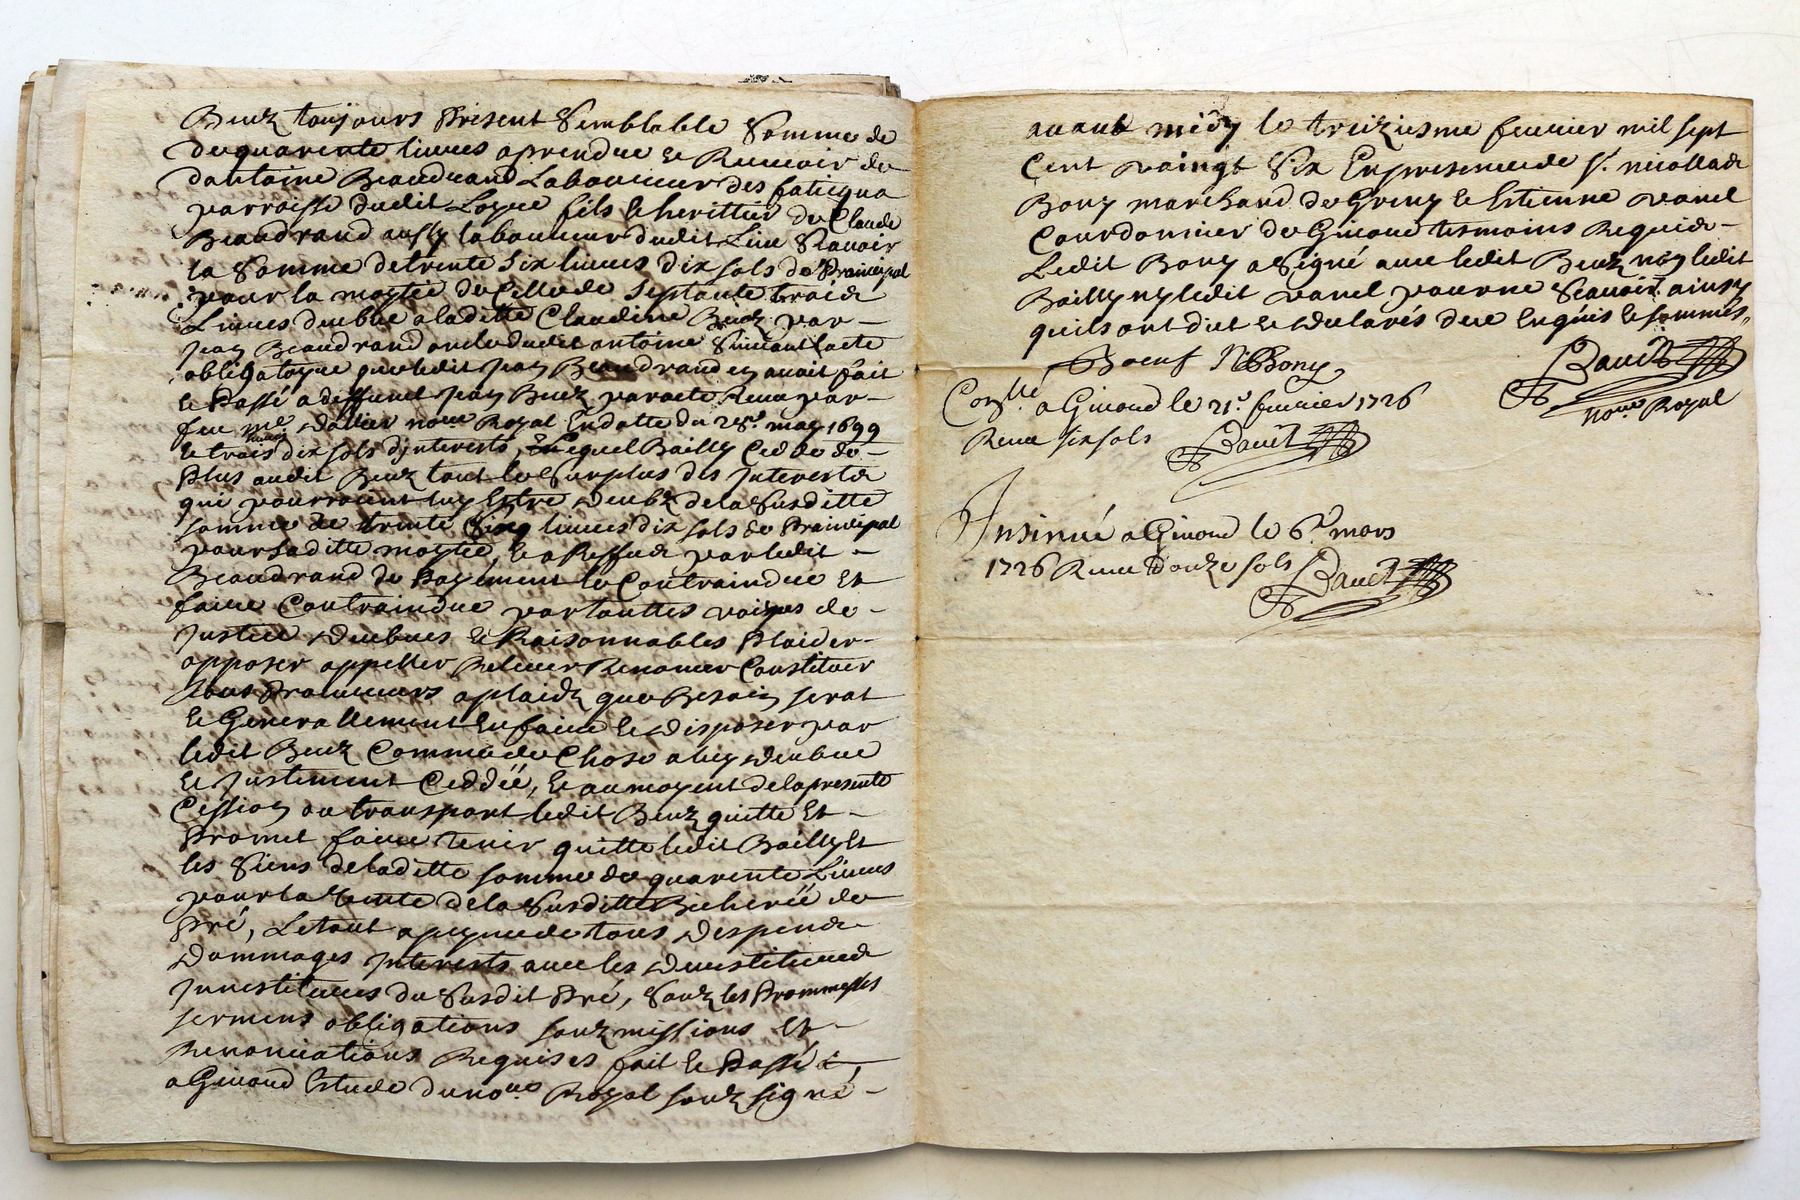 Beuz toujours présent Semblable Somme de
de quarente livres aprendre et Recevoir de
dantoine Beaudrand Laboureur des
parroisse dudit Loyre fils et herittier de Claude
Beaudrand aussy laboureur dudit Lieu Scavoir
la Somme de trente six livres dix sols de Principal
pour la moytié de Celle de Septante trois
Livres deubue a laditte Claudine Beuz par
Jean Beaudrand oncle dudit antoine Suivant lacte
obligatoyre que ledit Jean Beaudrand en avoit fait
et Passé a deffunct Jean Beuz par acte Receu par
feu me. Dallier nore Royal En datte du 28e. may 1699
et trois livres dix sols d'interests, Lequel Bailly Cedde de
Plus audit Beuz tout le Surplus des Interests
qui pourroient luy Estre deubz de la Susditte
somme de trente Cinq livres dix sols de Principal
pour saditte moytié, et a Reffus par ledit
Beaudrand de Payement le Contraindre Et
faire Contraindre par touttes voixes de
Justice deubues et Raisonnables Plaider
opposer appeller Relever Renoncer Constituer
tous Procureurs a plaidz que Besoin serat
et Generallement En faire et disposer par
ledit Beuz Comme de Chose a luy deubue
et Justement Ceddéé, et au moyent de la presente
Cession ou transport ledit Beuz quitte Et
Promet faire tenir quitte ledit Bailly Et
les Siens de laditte somme de quarente Livres
pour la Vente de la Susditte Bicheréé de
Pré, Le tout a peyne de tous despends
Dommages Interests avec les devestitures
Investitures du Susdit Pré, Souz les Prommesses
sermens obligations souzmissions Et
Renonciations Requises fait et Passé
a Givord Estude du nore Royal souz signé
avant midy le treiziesme fevrier mil sept
Cent vaingt Six En presence de Sr. nicollas
Bony marchand de Greny et Estienne vanel
Courdonnier de Givord tesmoins Requis
Ledit Bony a Signé avec ledit Beuz non ledit
Bailly ny ledit vanel pour ne Scavoir ainsy
quils ont dict et declarés de ce Enquis et sommés,
Boeuf N Bony
nore Royal
Conlle a Givord le 21e. fevrier 1726
Receu six sols
Insinué a Givord le 6e. mars
1726 Receu Douze sols